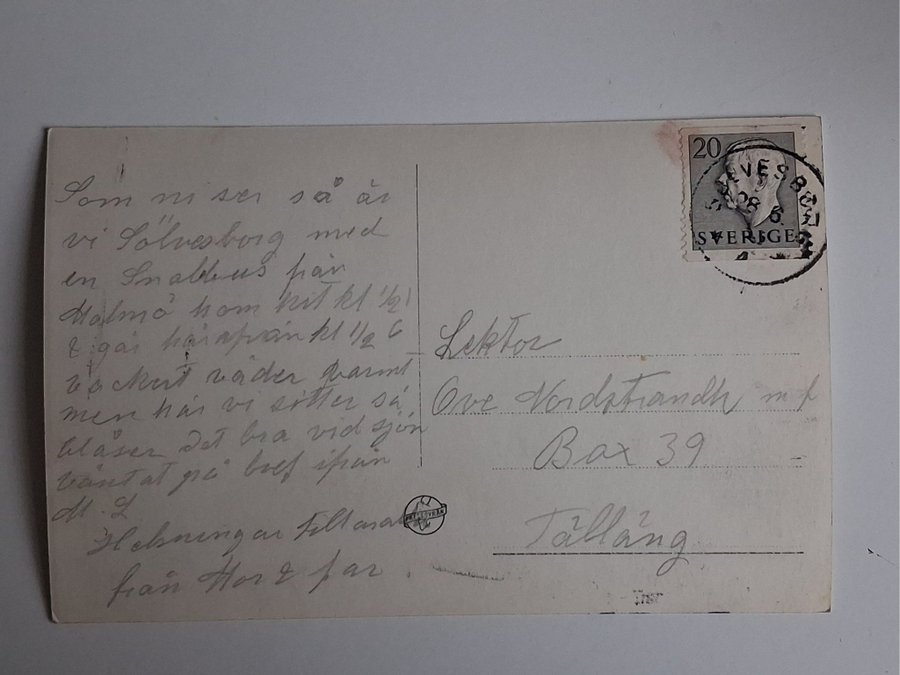 Som ni ser så är
vi Sölvesborg med
en Snalbus från
Malmö kom hit kl 1/2 1
& går härifrån kl 1/2 6
vackert väder varmt
men här vi sitter så
blåser det bra vid sjön
väntat på bref ifrån
M. L
Helsningar till
från Mor & far.
20
SÖLVESBORG
28 6
SVERIGE
Lektor
Ove Nordstrandh m f
Box 39
Tälläng